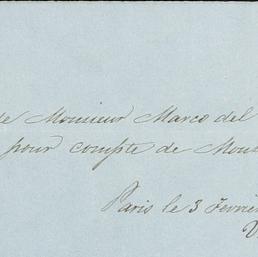 de Monsieur Marco del
pour compte de Mon
Paris le 3 Févrie